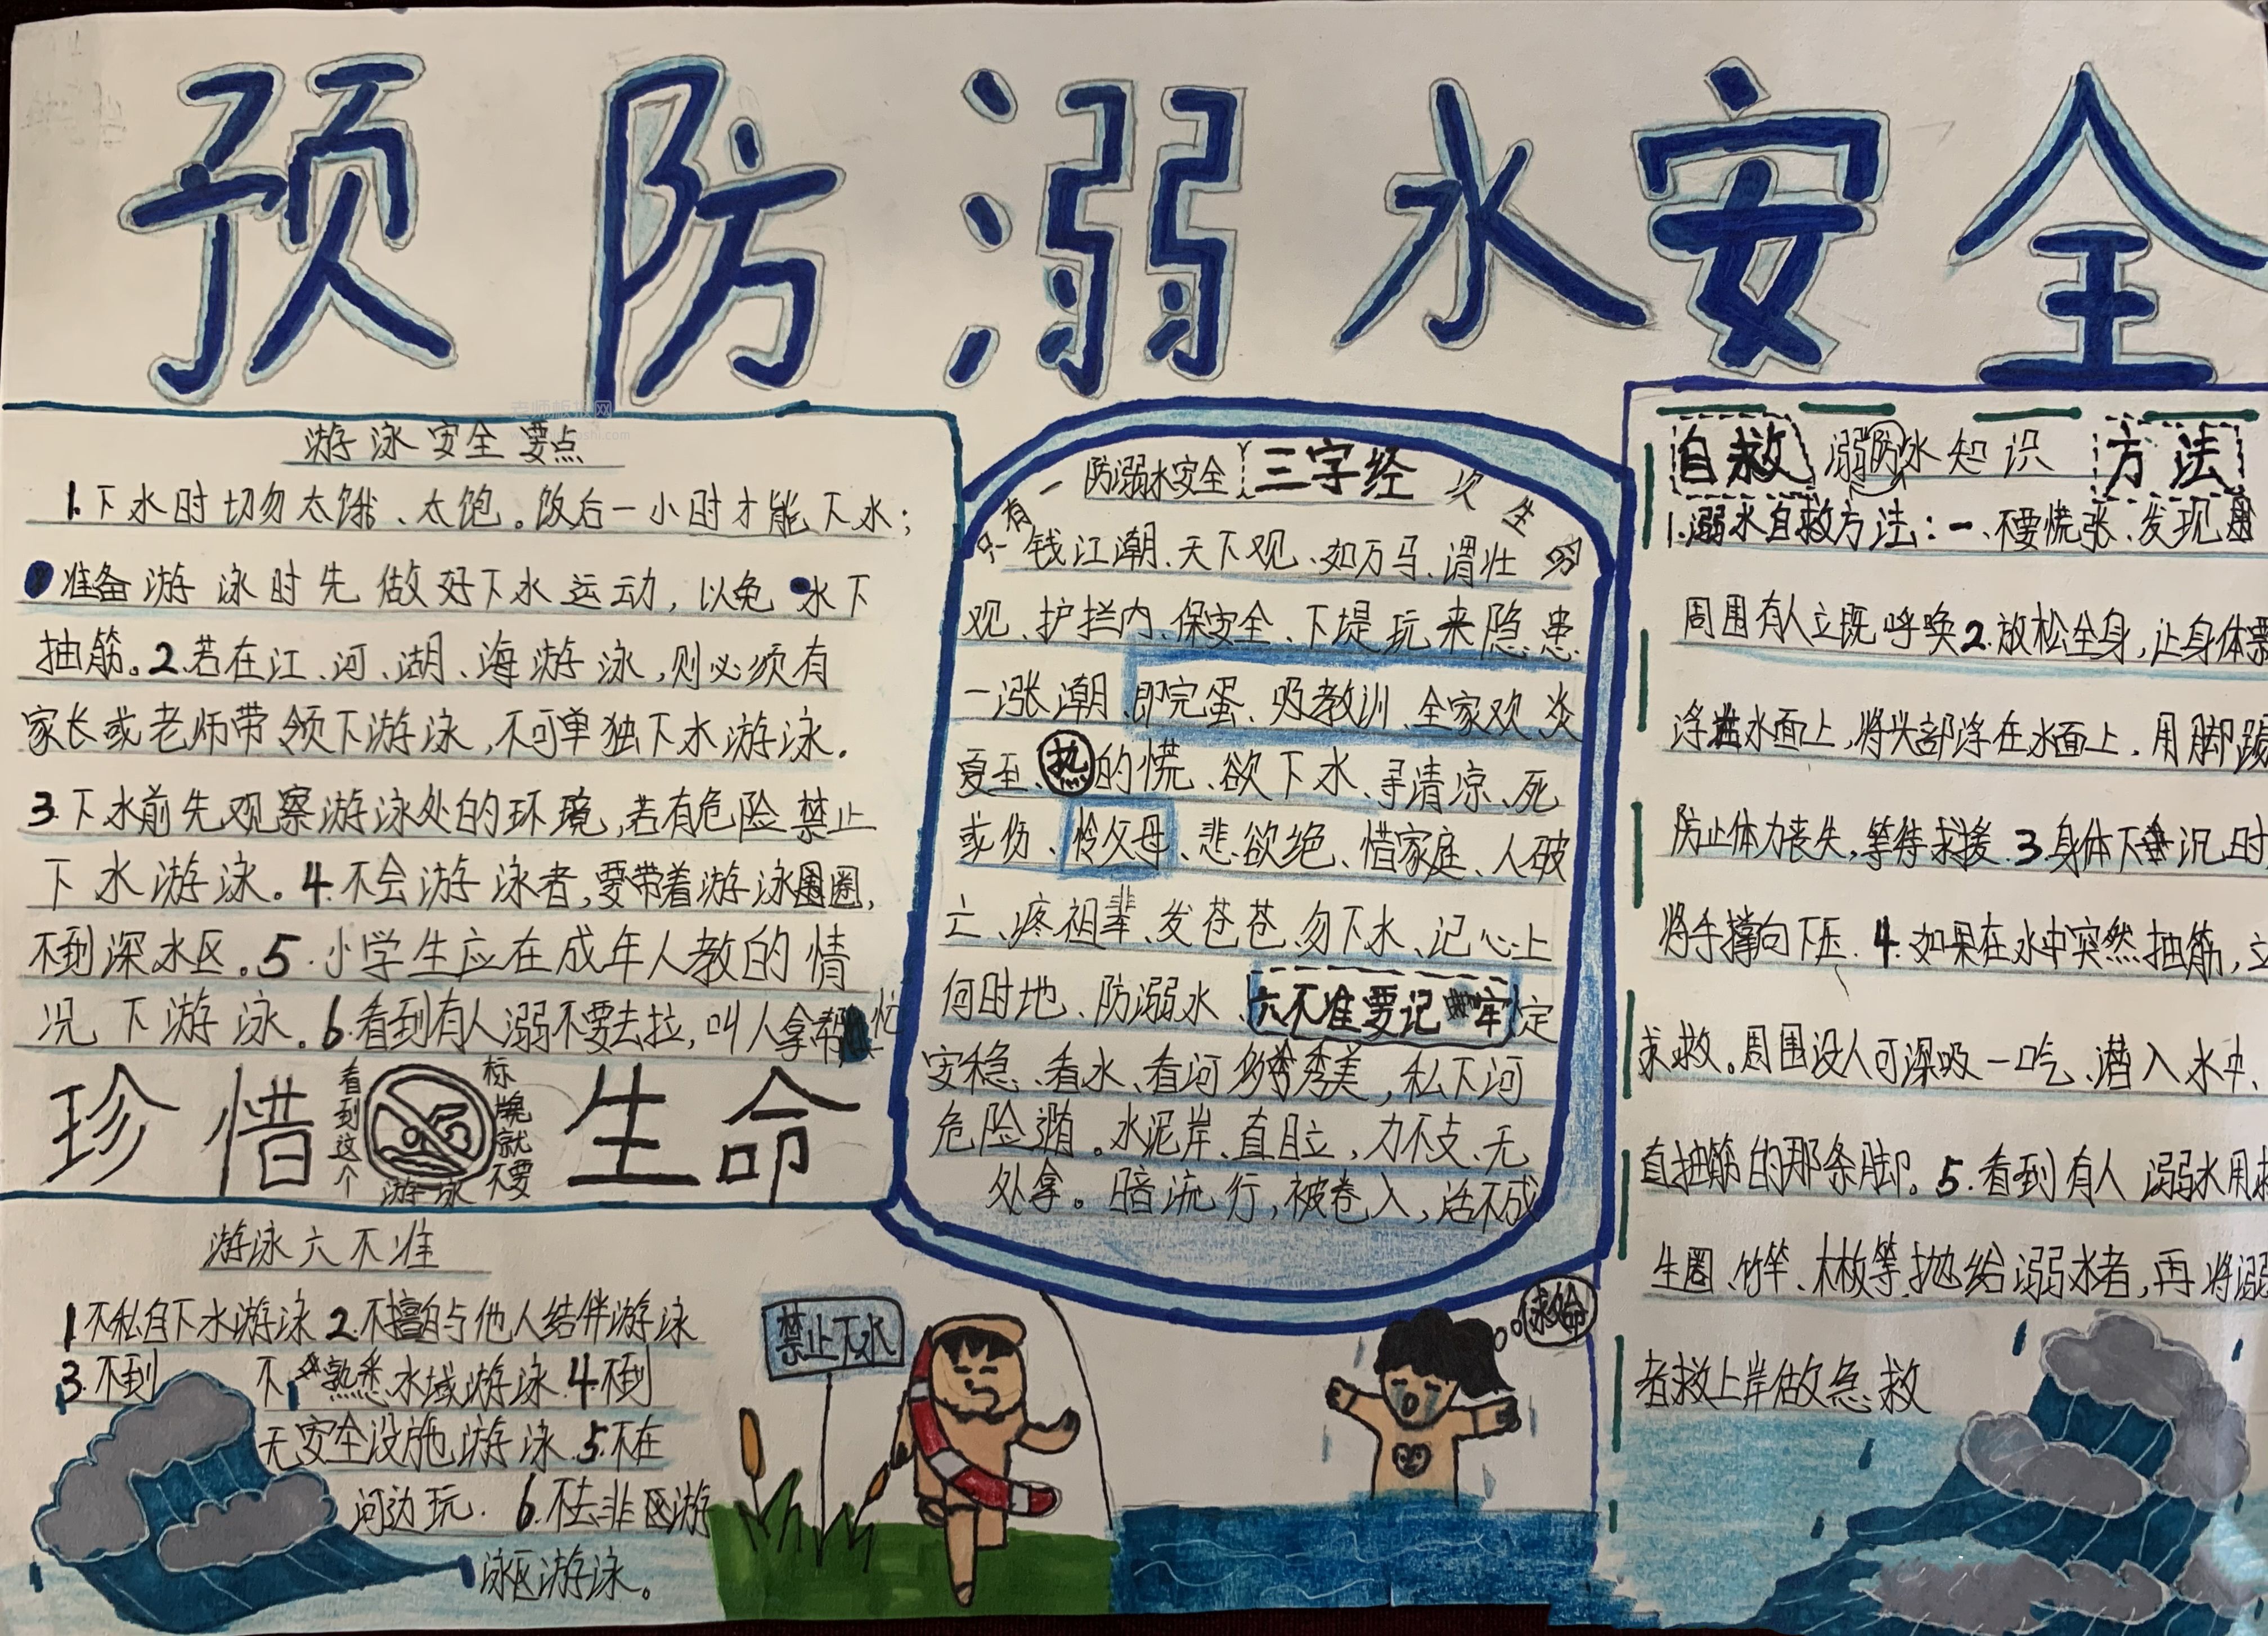 预防溺水安全
游泳安全要点
1.下水时切勿太饿、太饱。饭后一小时才能下水;
准备游泳时先做好下水运动,以免水下
抽筋。2.若在江、河、湖、海游泳,则必须有
家长或老师带领下游泳,不可单独下水游泳.
3.下水前先观察游泳处的环境,若有危险禁止
下水游泳。4.不会游泳者,要带着游泳圈,
不到深水区。5.小学生应在成年人教的情
况下游泳。6.看到有人溺不要去拉,叫人拿帮忙
珍惜生命
看到这个
标牌就不要
游泳
游泳六不准
1不私自下水游泳2.不擅自与他人结伴游泳
3.不到不熟悉水域游泳.4.不到
无安全设施游泳.5.不在
河边玩.6.不去非区游
泳区游泳。
防溺水安全三字经
只有一次生命
钱江潮、天下观、如万马、谓壮
观、护拦内、保安全、下堤玩来隐患
一涨潮、即完蛋、吸教训、全家欢炎
夏至、热的慌、欲下水、寻清凉、死
或伤、怜父母、悲欲绝、惜家庭、人破
亡、疼祖辈、发苍苍、勿下水、记心上
何时地、防溺水、六不准要记牢定
安稳、看水、看河秀美,私下河
危险遒。水泥岸、直且立,力不支、无
处拿。暗流行,被卷入,活不成
禁止下水
救命
自救溺防水知识方法
1.溺水自救方法:一、不要慌张、发现
周围有人立既呼唤2.放松全身,让身体飘
浮在水面上,将头部浮在水面上、用脚踢
防止体力丧失,等待求援.3.身体下沉时
将手撑向下压.4.如果在水中突然抽筋,立
求救。周围没人可深吸一吃、潜入水中、
直抽筋的那条脚。5.看到有人溺水用救
生圈、竹竿、木板等抛给溺水者,再将溺
者救上岸做急救